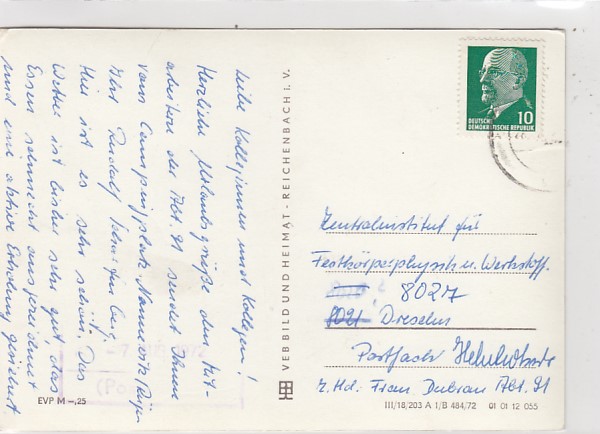 Liebe Kolleginnen und Kollegen!
Herzliche Urlaubsgrüße den Mit-
arbeitern der Abt. 21 sendet Ihnen
vom Campingplatz
Ihr Rudolf
Hier ist es sehr schön. Das
Wetter ist bisher sehr gut, das
Essen schmeckt ausgezeichnet
und eine aktive Erholung
VEB BILD UND HEIMAT - REICHENBACH i. V.
10
DEUTSCHE
DEMOKRATISCHE REPUBLIK
Zentralinstitut für
Festkörperphysik u. Werkstoff.
8027
8021 Dresden
Postfach Helmholtzstr.
z. Hd. Frau Abt. 21
EVP M –,25
III/18/203 A 1/B 484/72 01 01 12 055